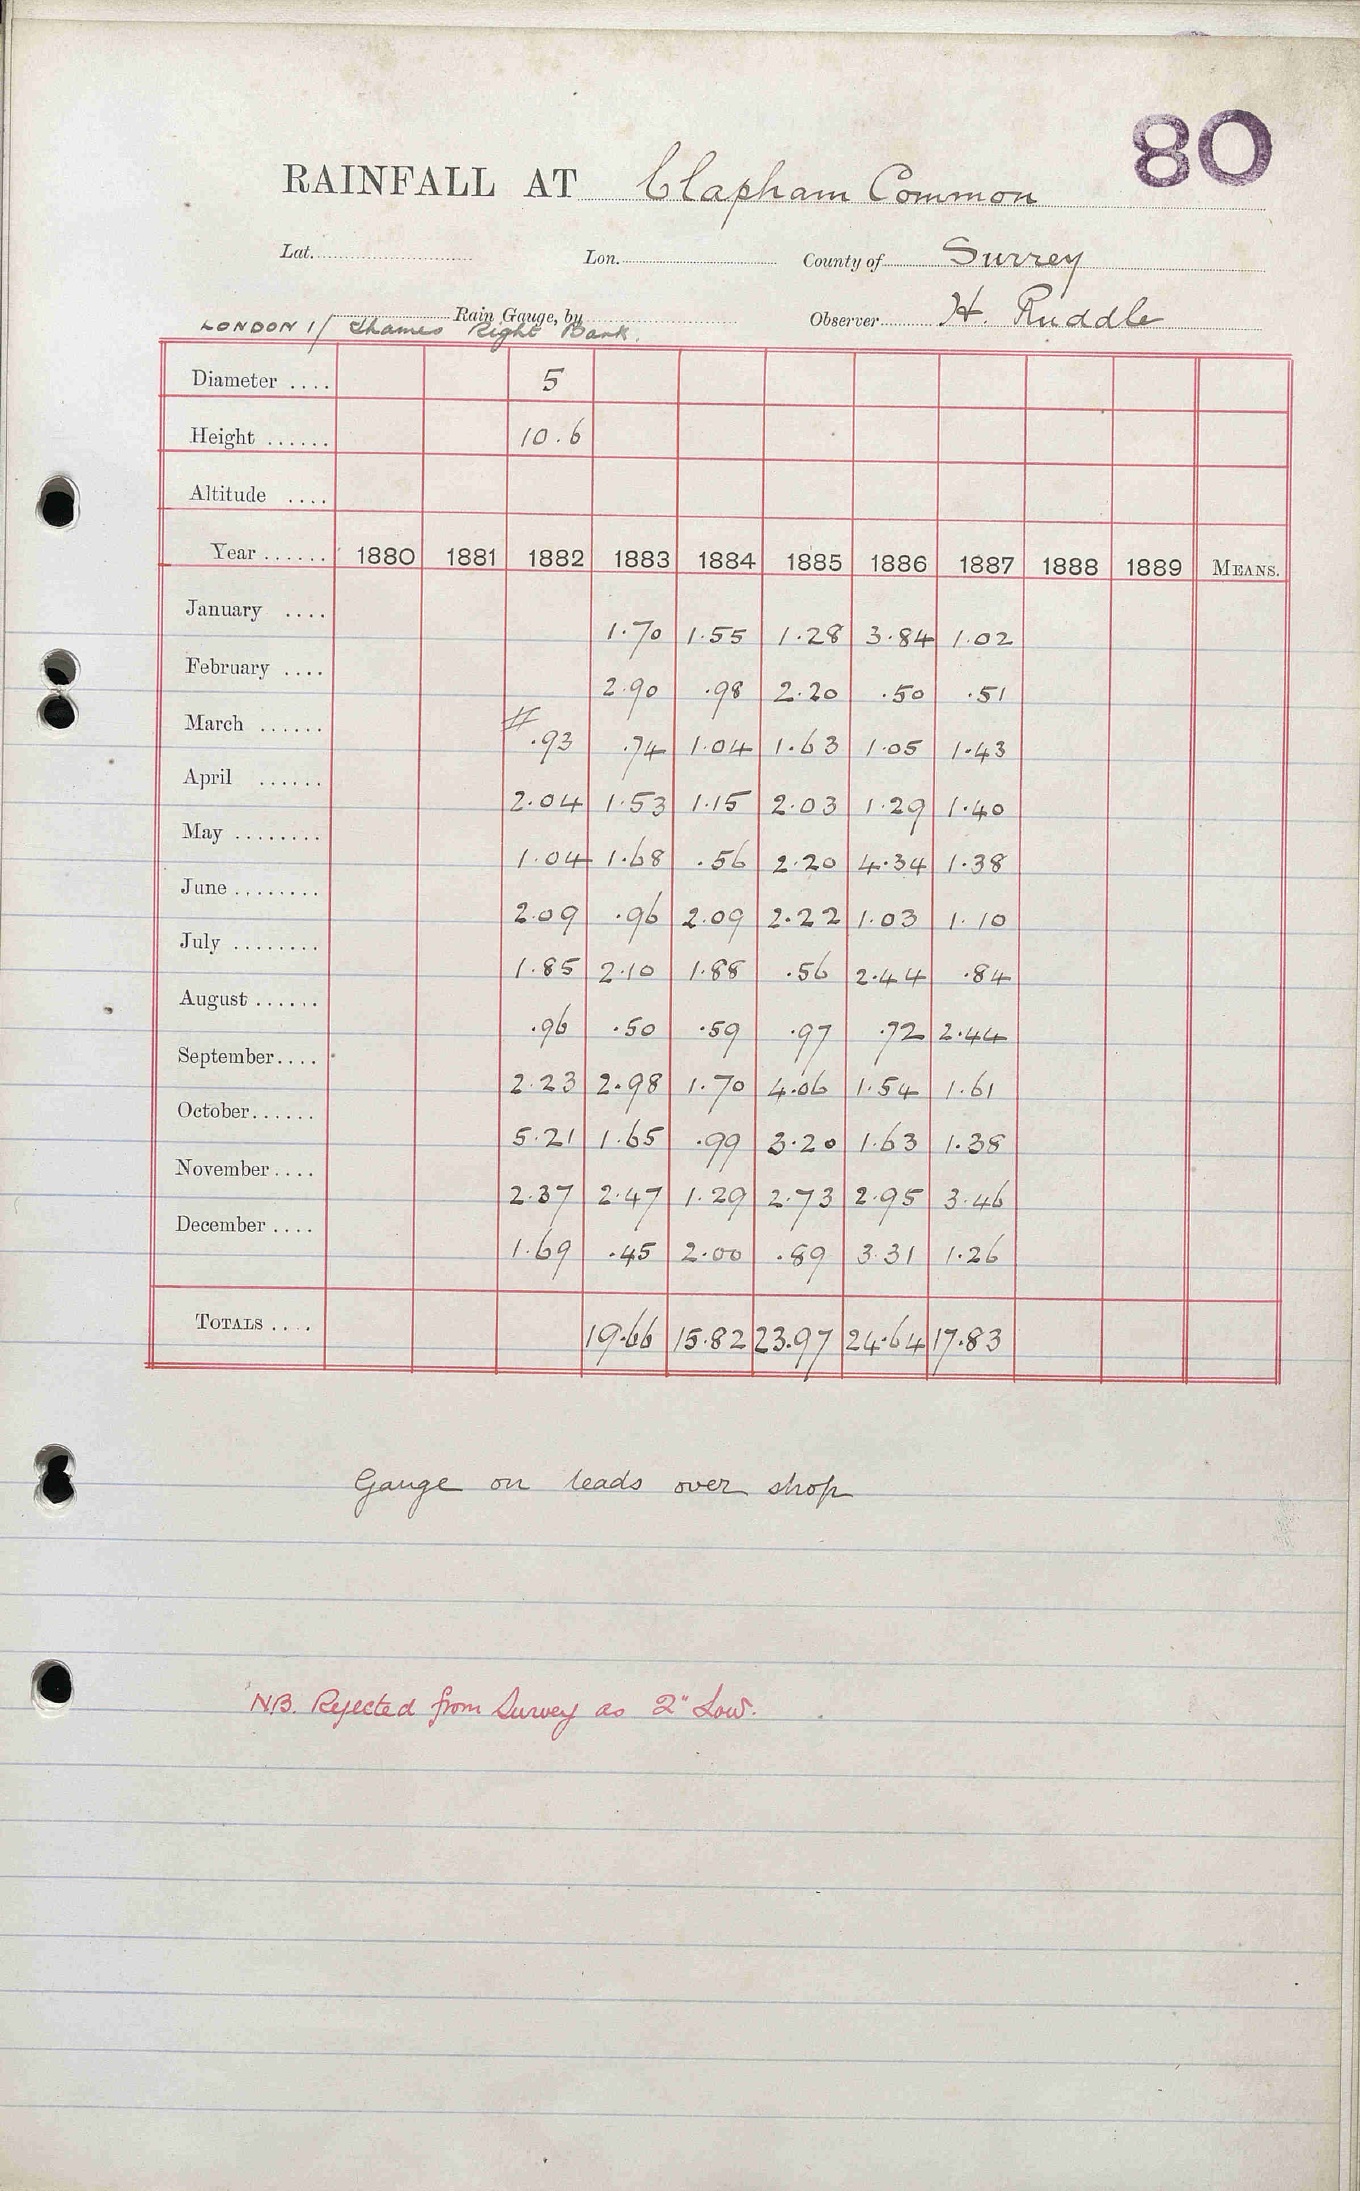 80
RAINFALL AT Clapham Common
Lat. Lon. County of Surrey
Rain Gauge, by Observer H. Ruddle
LONDON 1/ Thames Right Bank.
Diameter .... 5
Height ...... 10.6
Altitude ....
Year ...... 1880 1881 1882 1883 1884 1885 1886 1887 1888 1889 MEANS.
January .... 1.70 1.55 1.28 3.84 1.02
February .... 2.90 .98 2.20 .50 .51
March ...... # .93 .74 1.04 1.63 1.05 1.43
April ...... 2.04 1.53 1.15 2.03 1.29 1.40
May ........ 1.04 1.68 .56 2.20 4.34 1.38
June ........ 2.09 .96 2.09 2.22 1.03 1.10
July ........ 1.85 2.10 1.88 .56 2.44 .84
August ...... .96 .50 .59 .97 .72 2.44
September.... 2.23 2.98 1.70 4.06 1.54 1.61
October...... 5.21 1.65 .99 3.20 1.63 1.38
November.... 2.37 2.47 1.29 2.73 2.95 3.46
December .... 1.69 .45 2.00 .89 3.31 1.26
TOTALS .... 19.66 15.82 23.97 24.64 17.83
Gauge on leads over shop
N.B. Rejected from Survey as 2" Low.